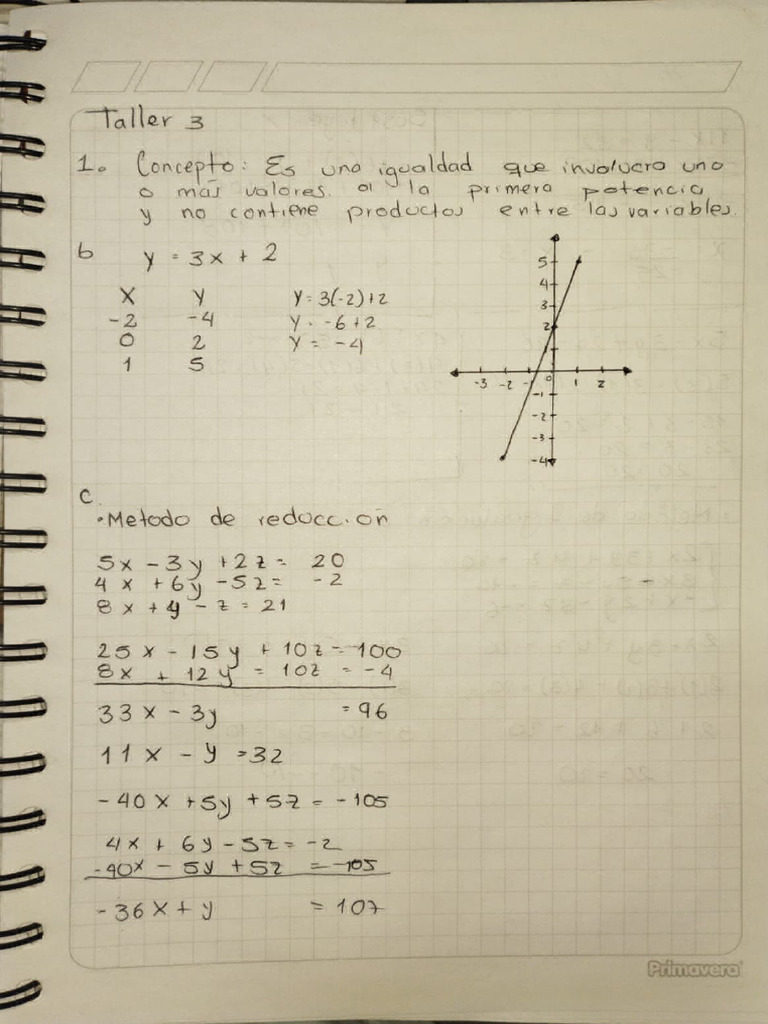 Taller 3
1. Concepto: Es una igualdad que involucra una
o más valores a la primera potencia
y no contiene productos entre las variables.
b y = 3x + 2
X Y Y = 3(-2)+2
-2 -4 Y = -6+2
0 2 Y = -4
1 5
5
4
3
2
-3 -2 -1 0 1 2
-1
-2
-3
-4
C.
• Metodo de reduccion
5x - 3y + 2z = 20
4x + 6y - 5z = -2
8x + y - z = 21
25x - 15y + 10z = 100
8x + 12y = 10z = -4
33x - 3y = 96
11x - y = 32
-40x + 5y + 5z = -105
4x + 6y - 5z = -2
-40x - 5y + 5z = -105
-36x + y = 107
Primavera